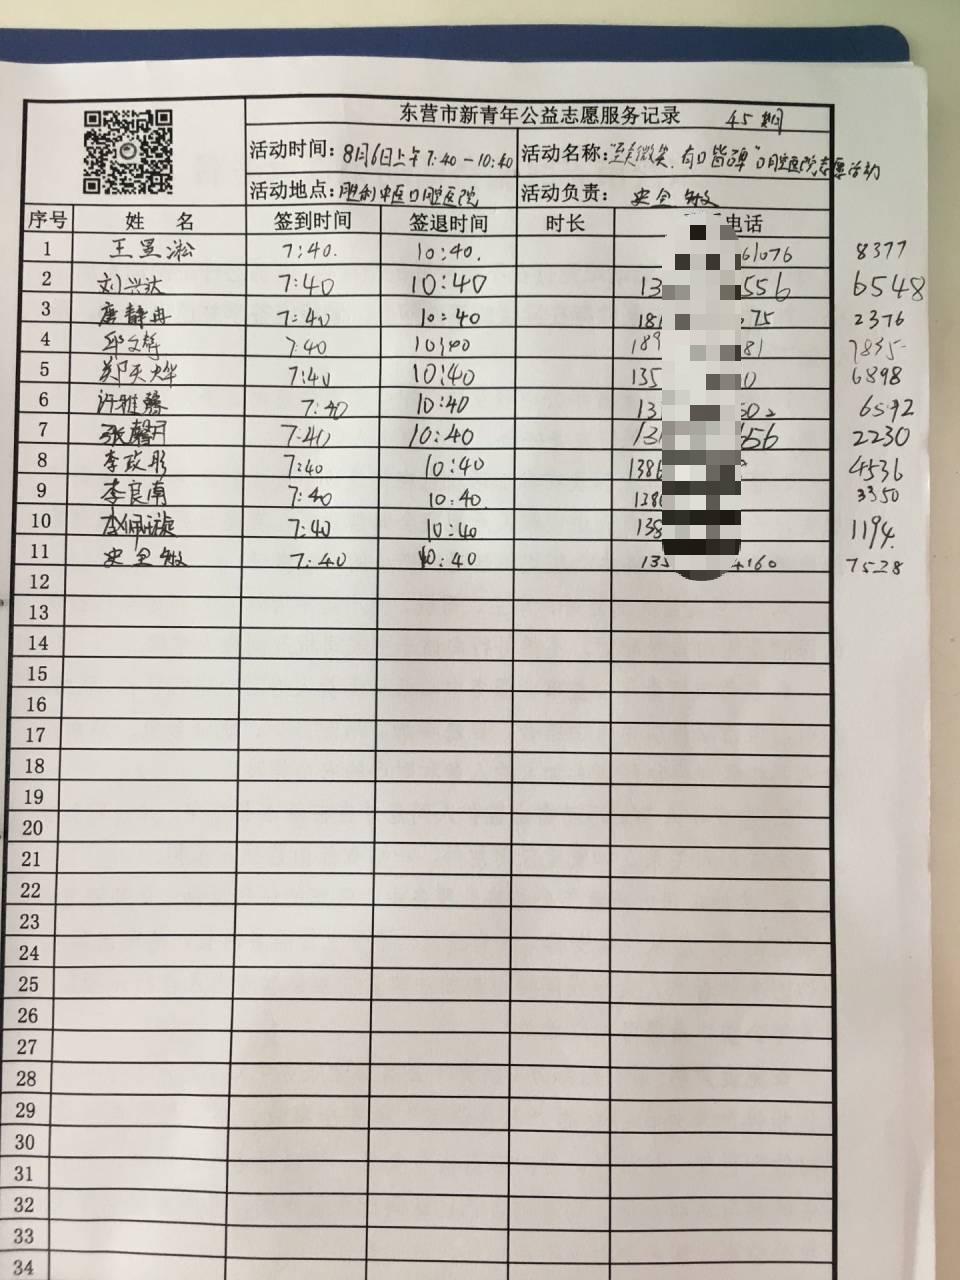 东营市新青年公益志愿服务记录 45期
活动时间：8月6日上午7:40-10:40 活动名称："至美微笑.有口皆碑"口腔医院志愿活动
活动地点：胜利中医口腔医院 活动负责：史全敏
序号 姓 名 签到时间 签退时间 时长 电话
1 7:40. 10:40. 61076 8377
2 刘兴达 7:40 10:40 13 556 6548
3 唐静冉 7:40 10:40 181 75 2376
4 邱文静 7:40 10:40 189 81 7835
5 郑天烨 7:40 10:40 135 0 6898
6 许雅馨 7:40 10:40 13 502 6592
7 7:40 10:40 131 656 2230
8 李政彤 7:40 10:40 1386 4536
9 李良南 7:40 10:40. 138 3350
10 7:40 10:40 138 1194.
11 史全敏 7:40 10:40 135 4160 7528
12
13
14
15
16
17
18
19
20
21
22
23
24
25
26
27
28
29
30
31
32
33
34